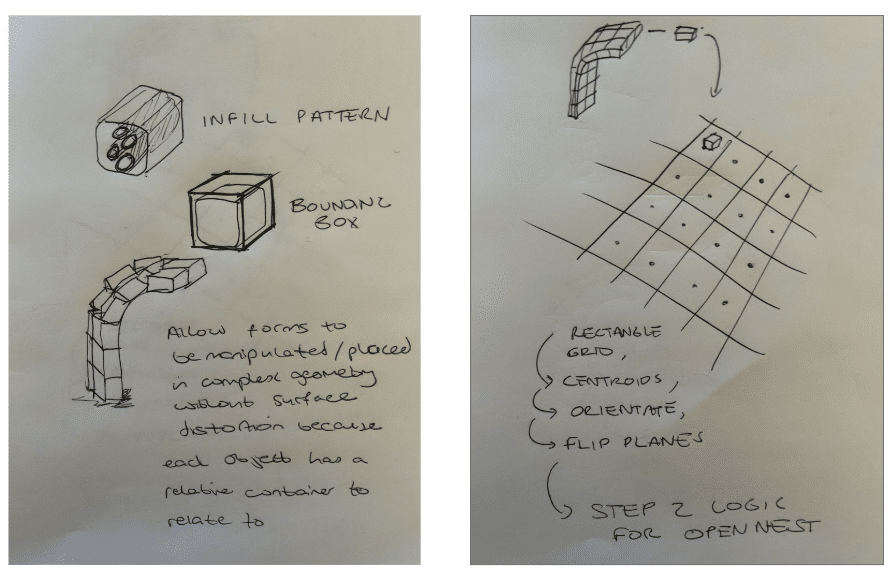 INFILL PATTERN
BOUNDING
BOX
Allow forms to
be manipulated/placed
in complex geometry
without surface
distortion because
each object has a
relative container to
relate to
RECTANGLE
GRID,
CENTROIDS,
ORIENTATE,
FLIP PLANES
STEP 2 LOGIC
FOR OPENNEST